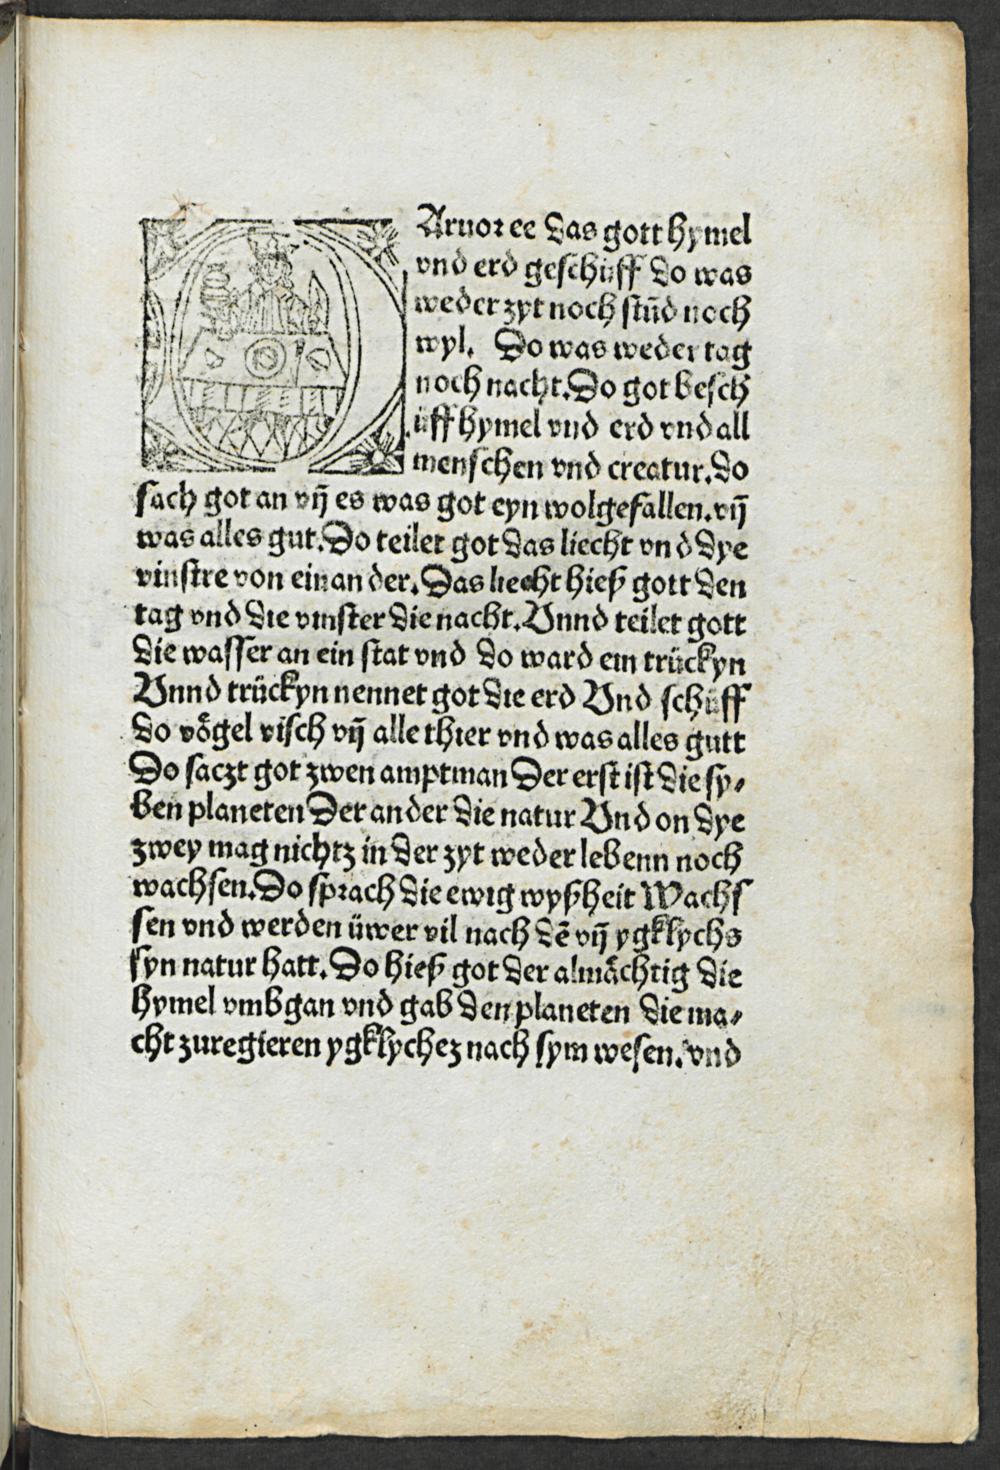 Aruor ee das gott hymel
vnd erd geschüff do was
weder zyt noch stūd noch
wyl. Do was weder tag
noch nacht. Do got besch
üff hymel vnd erd vnd all
menschen vnd creatur. do
sach got an vñ es was got eyn wolgefallen. vñ
was alles gut. Do teilet got das liecht vn d dye
vinstre von einan der. Das liecht hieß gott den
tag vnd die vinster die nacht. Vnnd teilet gott
die wasser an ein stat vnd do ward ein trückyn
Vnnd trückyn nennet got die erd Vnd schüff
do vögel visch vñ alle thier vnd was alles gutt
Do saczt got zwen amptman Der erst ist die sy⸗
ben planeten Der ander die natur Vnd on dye
zwey mag nichtz in der zyt weder lebenn noch
wachsen. Do sprach die ewig wyßheit Wachs
sen vnd werden üwer vil nach dē vñ ygklychs
syn natur hatt. Do hieß got der almächtig die
hymel vmbgan vnd gab den planeten die ma⸗
cht zuregieren ygklychez nach sym wesen. vnd